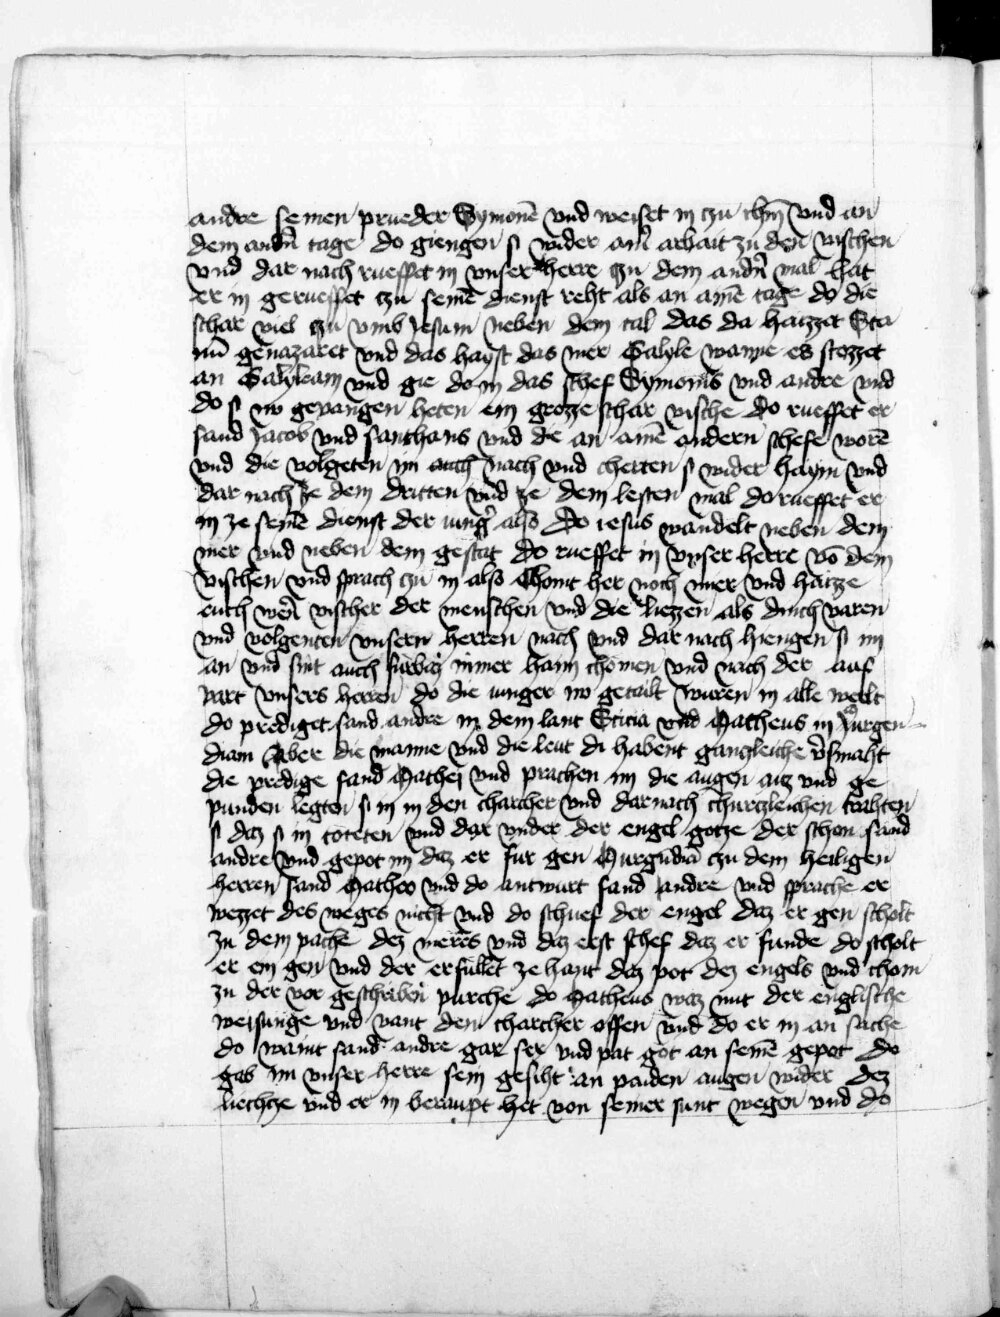 andre seinen prueder Symonē vnd weiset in czu ihm̄ vnd an
dem andn̄ tage do giengen si wider an ir arbait zu den vischen
vnd dar nach rueffet in vnser herre czu dem andn̄ mal hat
er in gerueffet czu seinē dienst reht als an ainē tage do die
schar viel czu vmb Jesum neben dem tal das da haizzet Sta
nū genazaret vnd das hayst das mer Galyle wanne es stozzet
an Galyleam vnd gie do in das schef Symonis vnd andre vnd
do si nv gevangen heten ein grozze schar vische do rueffet er
sand Jacob vnd santhans vnd die an ainē andern schefe worē
vnd die volgeten im auch nach vnd cherten si wider haym vnd
dar nach ze dem dritten vnd ze dem lesten mal do rueffet er
in ze seinē dienst der iunḡ also Do iesus wandelt neben dem
mer vnd neben dem gestat do rueffet in vnser herre vō dem
vischen vnd sprach czu in also Chomt her noch mer vnd haizze
euch wern̄ vischer der menschen vnd die liezzen als dinch varen
vnd volgenten vnsern herren nach vnd dar nach hiengen si im
an vnd sint auch furbaz immer haim chomen vnd nach der auf
vart vnsers herren do die iunger nv getailt wuren in alle werlt
do prediget sand andre in dem lant Sticia vnd Matheus in Murgen
diam Aber die manne vnd die leut di habent ganczleiche v̄smaht
die predige sand Mathei vnd prachen im die augen auz vnd ge
punden legten si in in den charcher vnd darnach churczleichen trahten
si daz si in toteten vnd dar vnder der engel gotze der schon sand
andre vnd gepot im daz er fur gen Murgūdia czu dem heiligen
herren sand Matheo vnd do antwurt sand andre vnd sprache er
wezzet des weges nicht vnd do schuef der engel daz er gen scholt
zu dem pache dez meres vnd daz erst schef daz er funde do scholt
er ein gen vnd der erfullet ze hant daz pot dez engels vnd chom
zu der vor geschriben purche do Matheus waz mit der englische
weisunge vnd vant den charcher offen vnd do er in an sache
do waint sand andre gar ser vnd pat got an seinē gepot Do
gab im vnser herre sein gesiht an paiden augen wider dez
liechcze vnd er in beraupt het von seiner sunt wegen vnd do